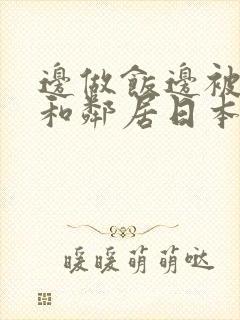 邊做飯邊被
和鄰居日本
暖暖萌萌噠